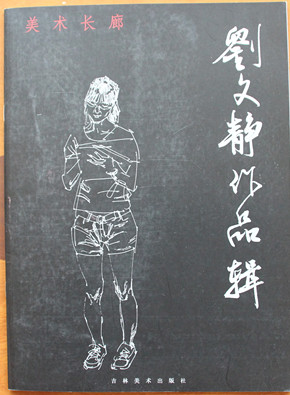 美术长廊
劉文静作品辑
吉林美术出版社